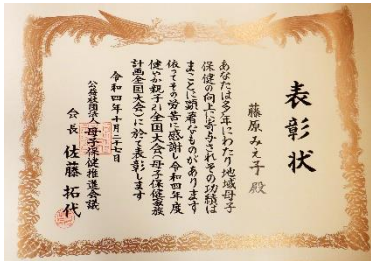 表彰状
藤原みえ子殿
あなたは多年にわたり地域母子
保健の向上に寄与されその功績は
まことに顕著なものがあります
依ってその労苦に感謝し令和四年度
健やか親子21全国大会(母子保健家族
計画全国大会)に於て表彰します
令和四年十月二十七日
公益社団法人母子保健推進会議
会長 佐藤拓代